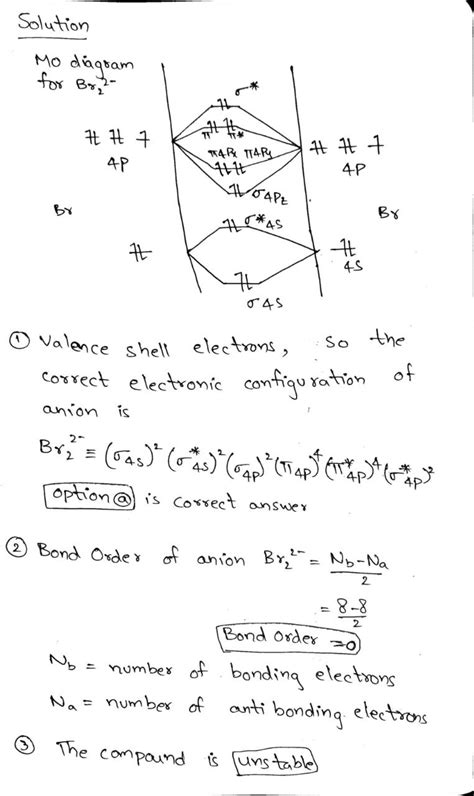 Solution
MO diagram
for Br₂²⁻
σ*
π* π*
4P
π4Px π4Py
4P
σ4Pz
Br
Br
σ*4S
4S
σ4S
① Valence shell electrons, so the
correct electronic configuration of
anion is
Br₂²⁻ ≡ (σ4S)² (σ*4S)² (σ4P)² (π4P)⁴ (π*4P)⁴ (σ*4P)²
option ⓐ is correct answer
② Bond Order of anion Br₂²⁻ = Nb-Na
2
= 8-8
2
Bond Order =0
Nb = number of bonding electrons
Na = number of antibonding electrons
③ The compound is unstable